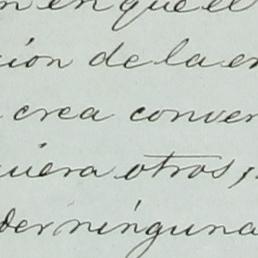 en que el
ción de la en
crea conven
quiera otros,
der ninguna